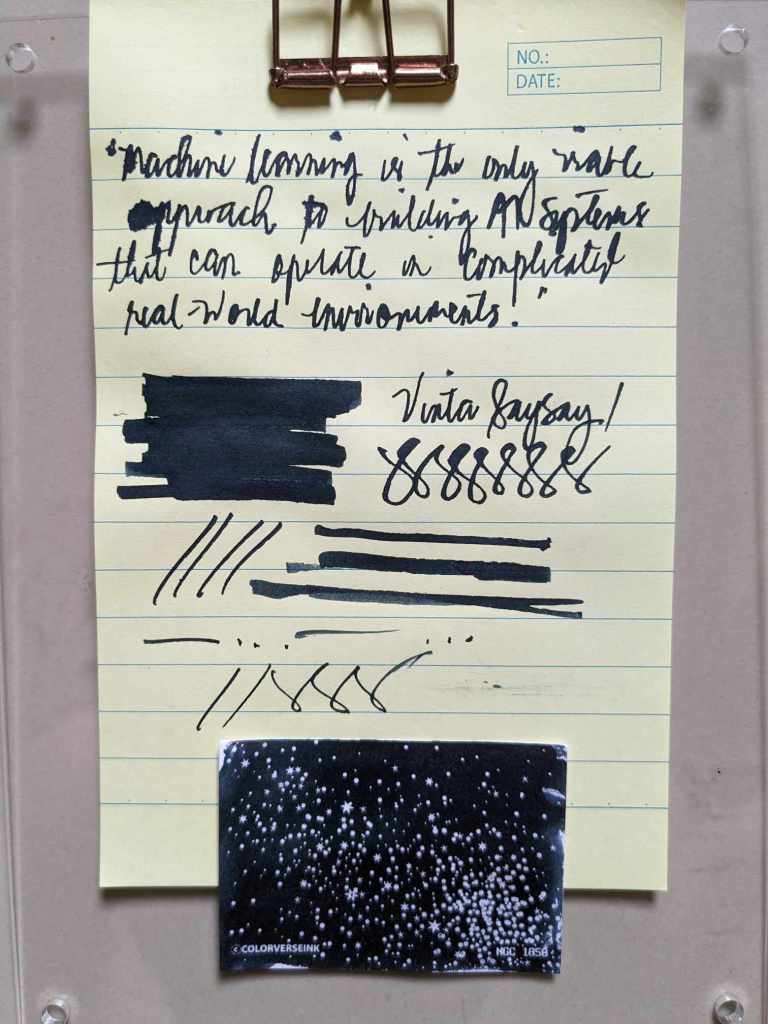 NO.:
DATE:
"Machine learning is the only viable
approach to building AI systems
that can operate in complicated
real-world environments."
Vinta
©COLORVERSEINK
NGC 1850